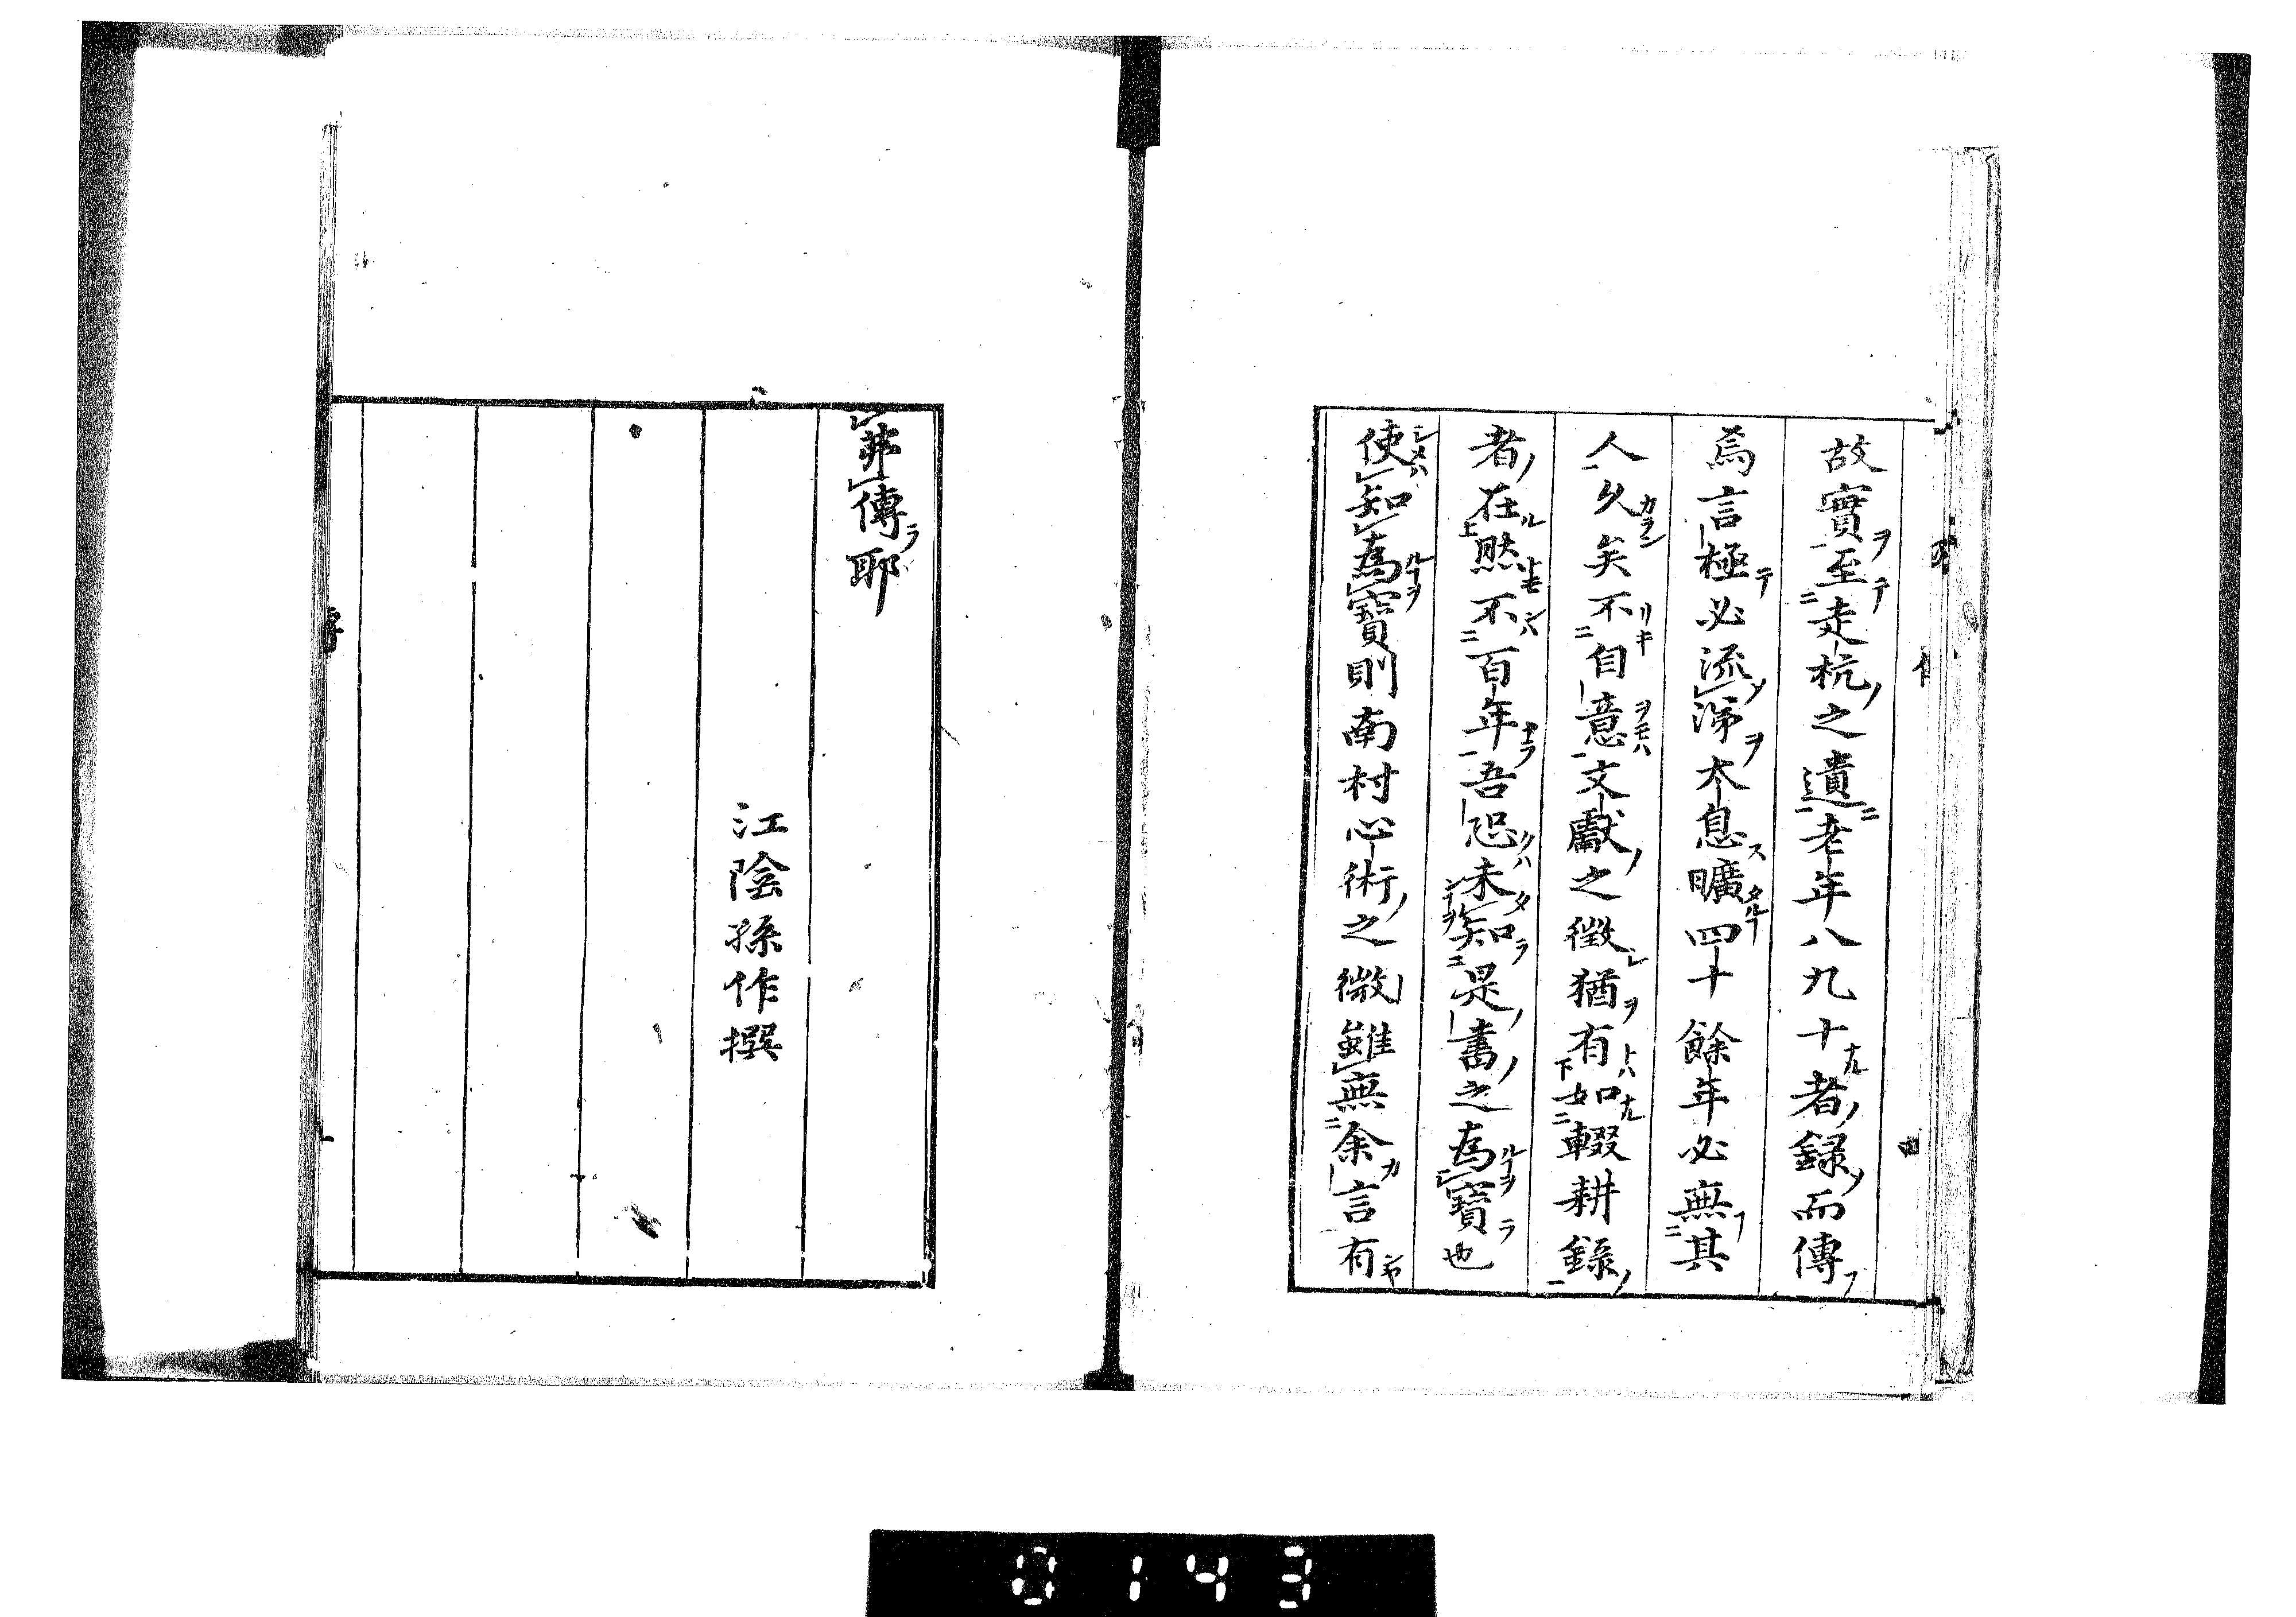 故實至走杭之遺老年八九十者録而傳
焉言極必流涕太息曠四十餘年必無其
人久矣不自意文獻之徴猶有如輟耕録
者在然不百年吾恐未知是書之為寶也
使知為寶則南村心術之微雖無余言有
弗傳耶
江陰孫作撰
0143